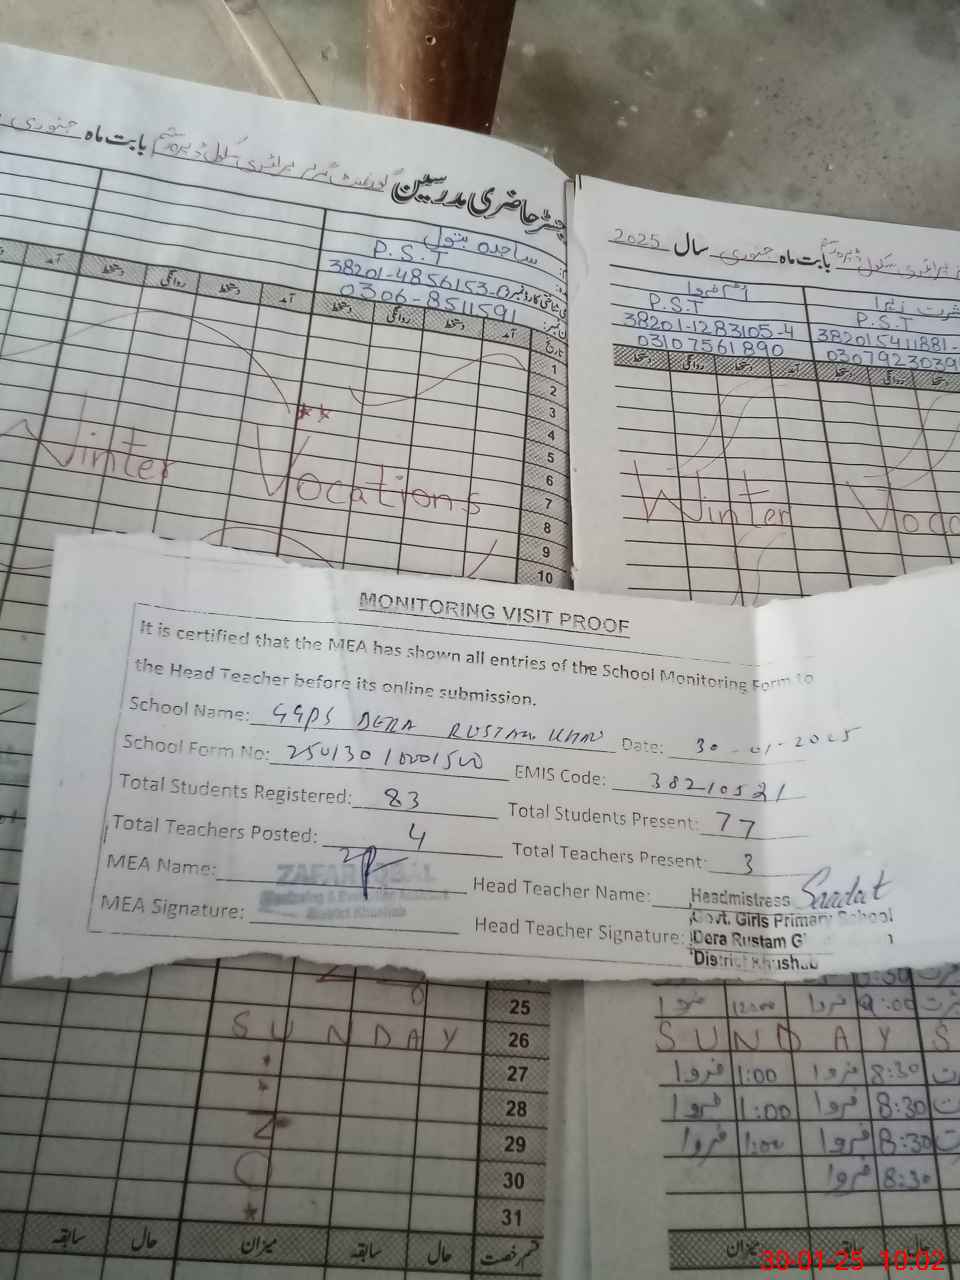 رجسٹر حاضری مدرسین گورنمنٹ گرلز پرائمری سکول ڈیرہ رستم بابت ماہ جنوری
ساجدہ بتول
P.S.T
38201-4856153-0
0306-8511591
آمد دستخط روانگی دستخط آمد دستخط روانگی دستخط آمد
تاریخ
1
2
3
4
5
6
7
8
9
10
Winter Vocations
پرائمری سکول ڈیرہ رستم بابت ماہ جنوری سال 2025
P.S.T
38201-1283105-4
03107561890
P.S.T
382015411881-
030792303
آمد دستخط روانگی دستخط
Winter Voca
MONITORING VISIT PROOF
It is certified that the MEA has shown all entries of the School Monitoring Form to
the Head Teacher before its online submission.
School Name: GGPS DERA RUSTAM KHAN Date: 30-01-2025
School Form No: EMIS Code: 38210521
Total Students Registered: 83 Total Students Present: 77
Total Teachers Posted: 4 Total Teachers Present: 3
MEA Name: ZAFAR IQBAL Head Teacher Name: Headmistress Saadat
Monitoring & Evaluation Assistant
District Khushab
Govt. Girls Primary School
MEA Signature: Head Teacher Signature: Dera Rustam
District Khushab
25
SUNDAY 26
27
28
29
30
31
سابقہ حال میزان سابقہ حال قسم رخصت
فروا 12:00 فروا 9:00
SUNDAY S
فروا 1:00 فروا 8:30
فروا 1:00 فروا 8:30
فروا 1:00 فروا 8:30
فروا 8:30
میزان سابقہ حال
30-01-25 10:02